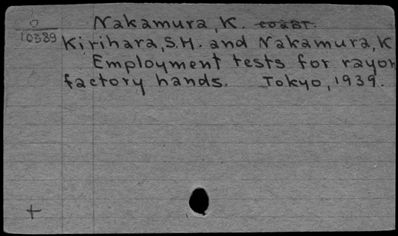 Nakamura, K.
10389
Kirihara, S.H. and Nakamura, K
Employment tests for rayon
factory hands. Tokyo, 1939.